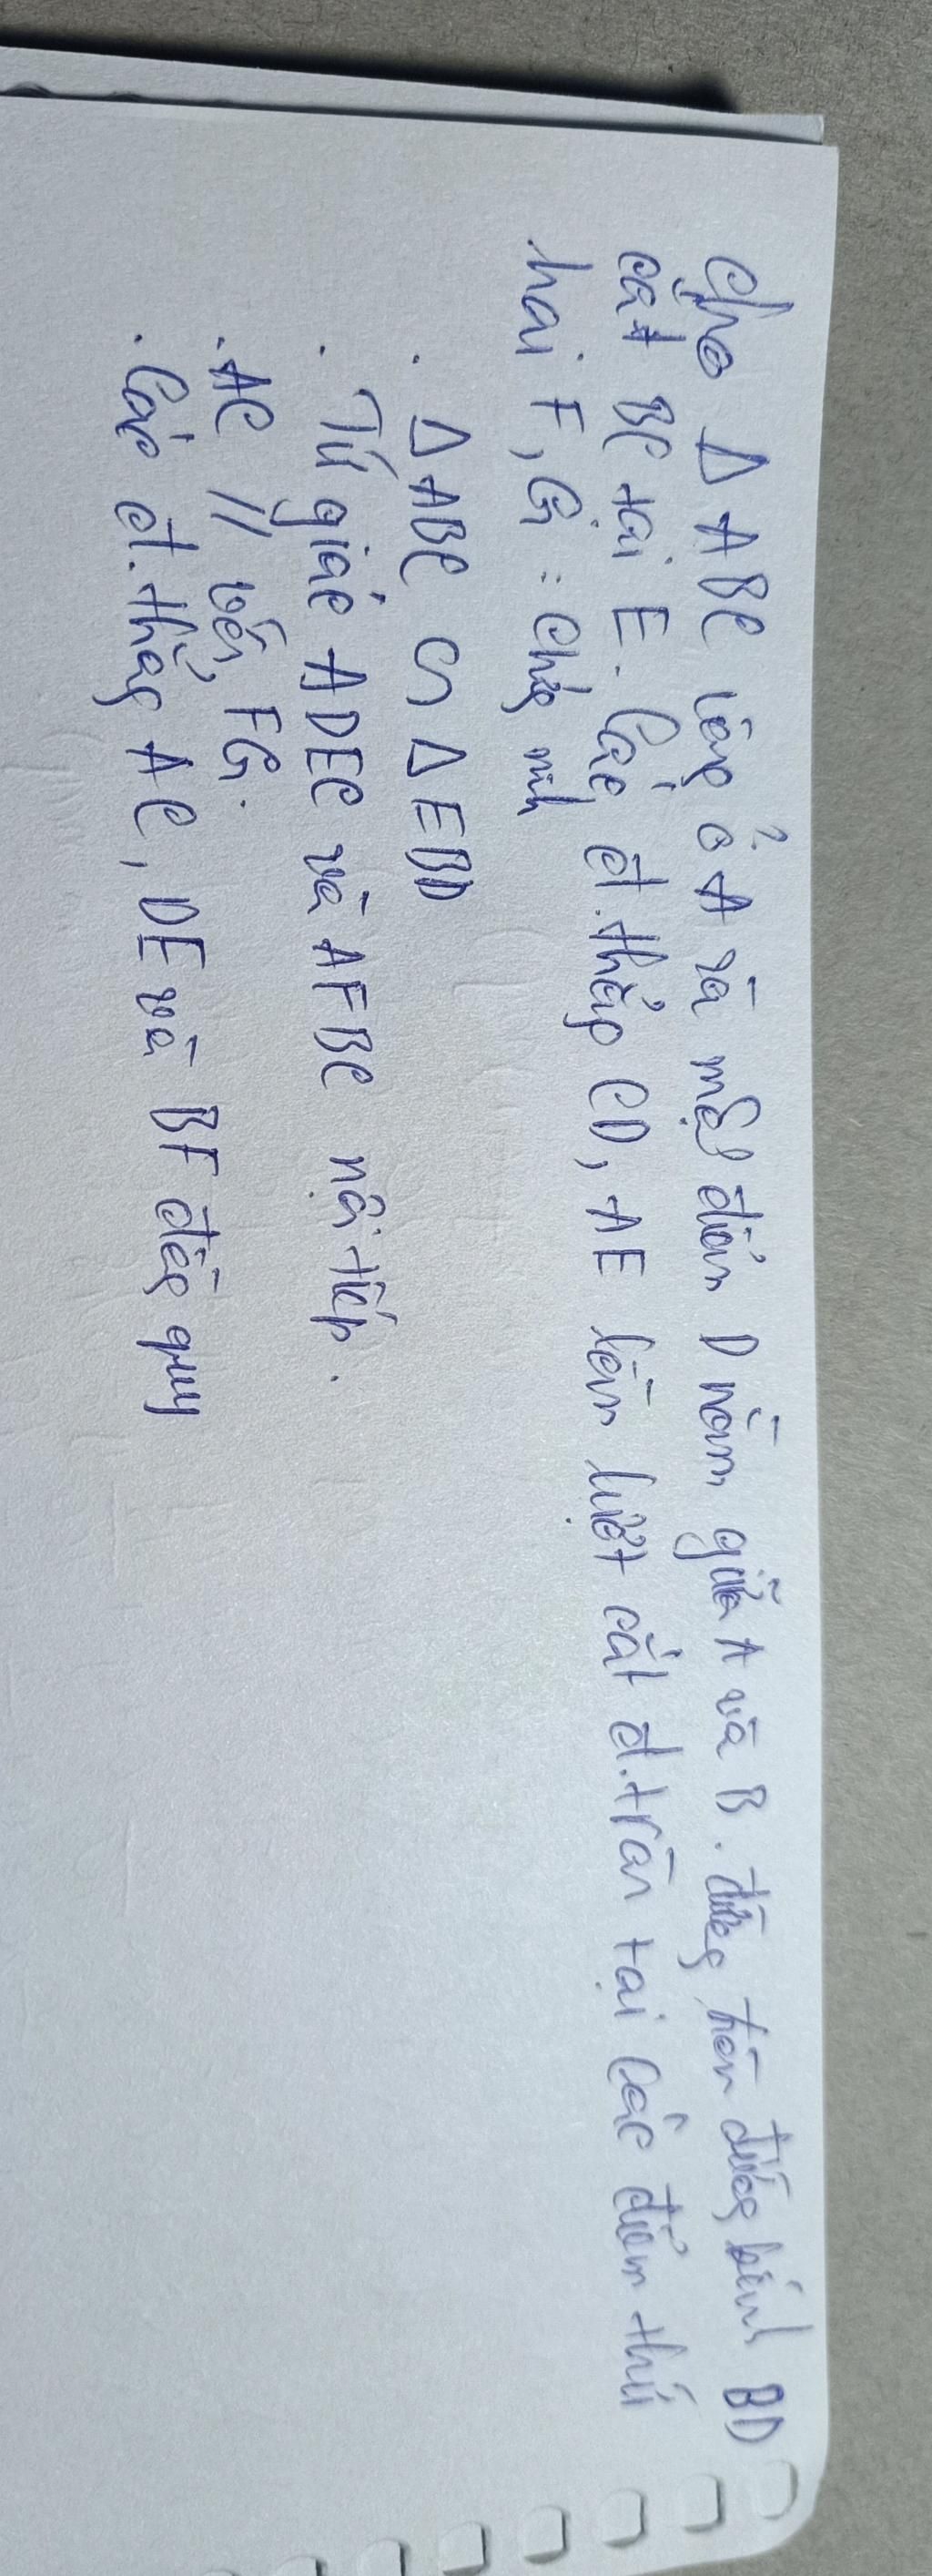 Cho Δ ABC vuông ở A và một điểm D nằm giữa A và B. đường tròn đường kính BD
cắt BC tại E. Các đ.thẳng CD, AE lần lượt cắt đ.tròn tại các điểm thứ
hai F, G : Chứng minh
. Δ ABC ∽ Δ EBD
. Tứ giác ADEC và AFBC nội tiếp.
. AC // với FG.
. Các đ.thẳng AC, DE và BF đồng quy